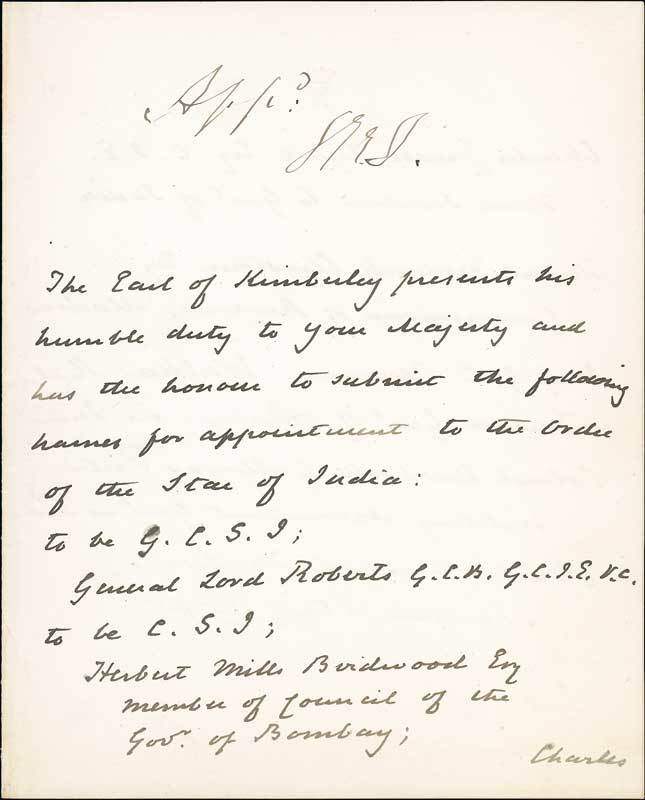 App^d.
VRI.
The Earl of Kimberley presents his
humble duty to your Majesty and
has the honour to submit the following
names for appointment to the Order
of the Star of India:
to be G. C. S. I;
General Lord Roberts G.C.B. G.C.I.E. V.C.
to be C. S. I;
Herbert Mills Birdwood Esq
member of Council of the
Gov^r. of Bombay;
Charles